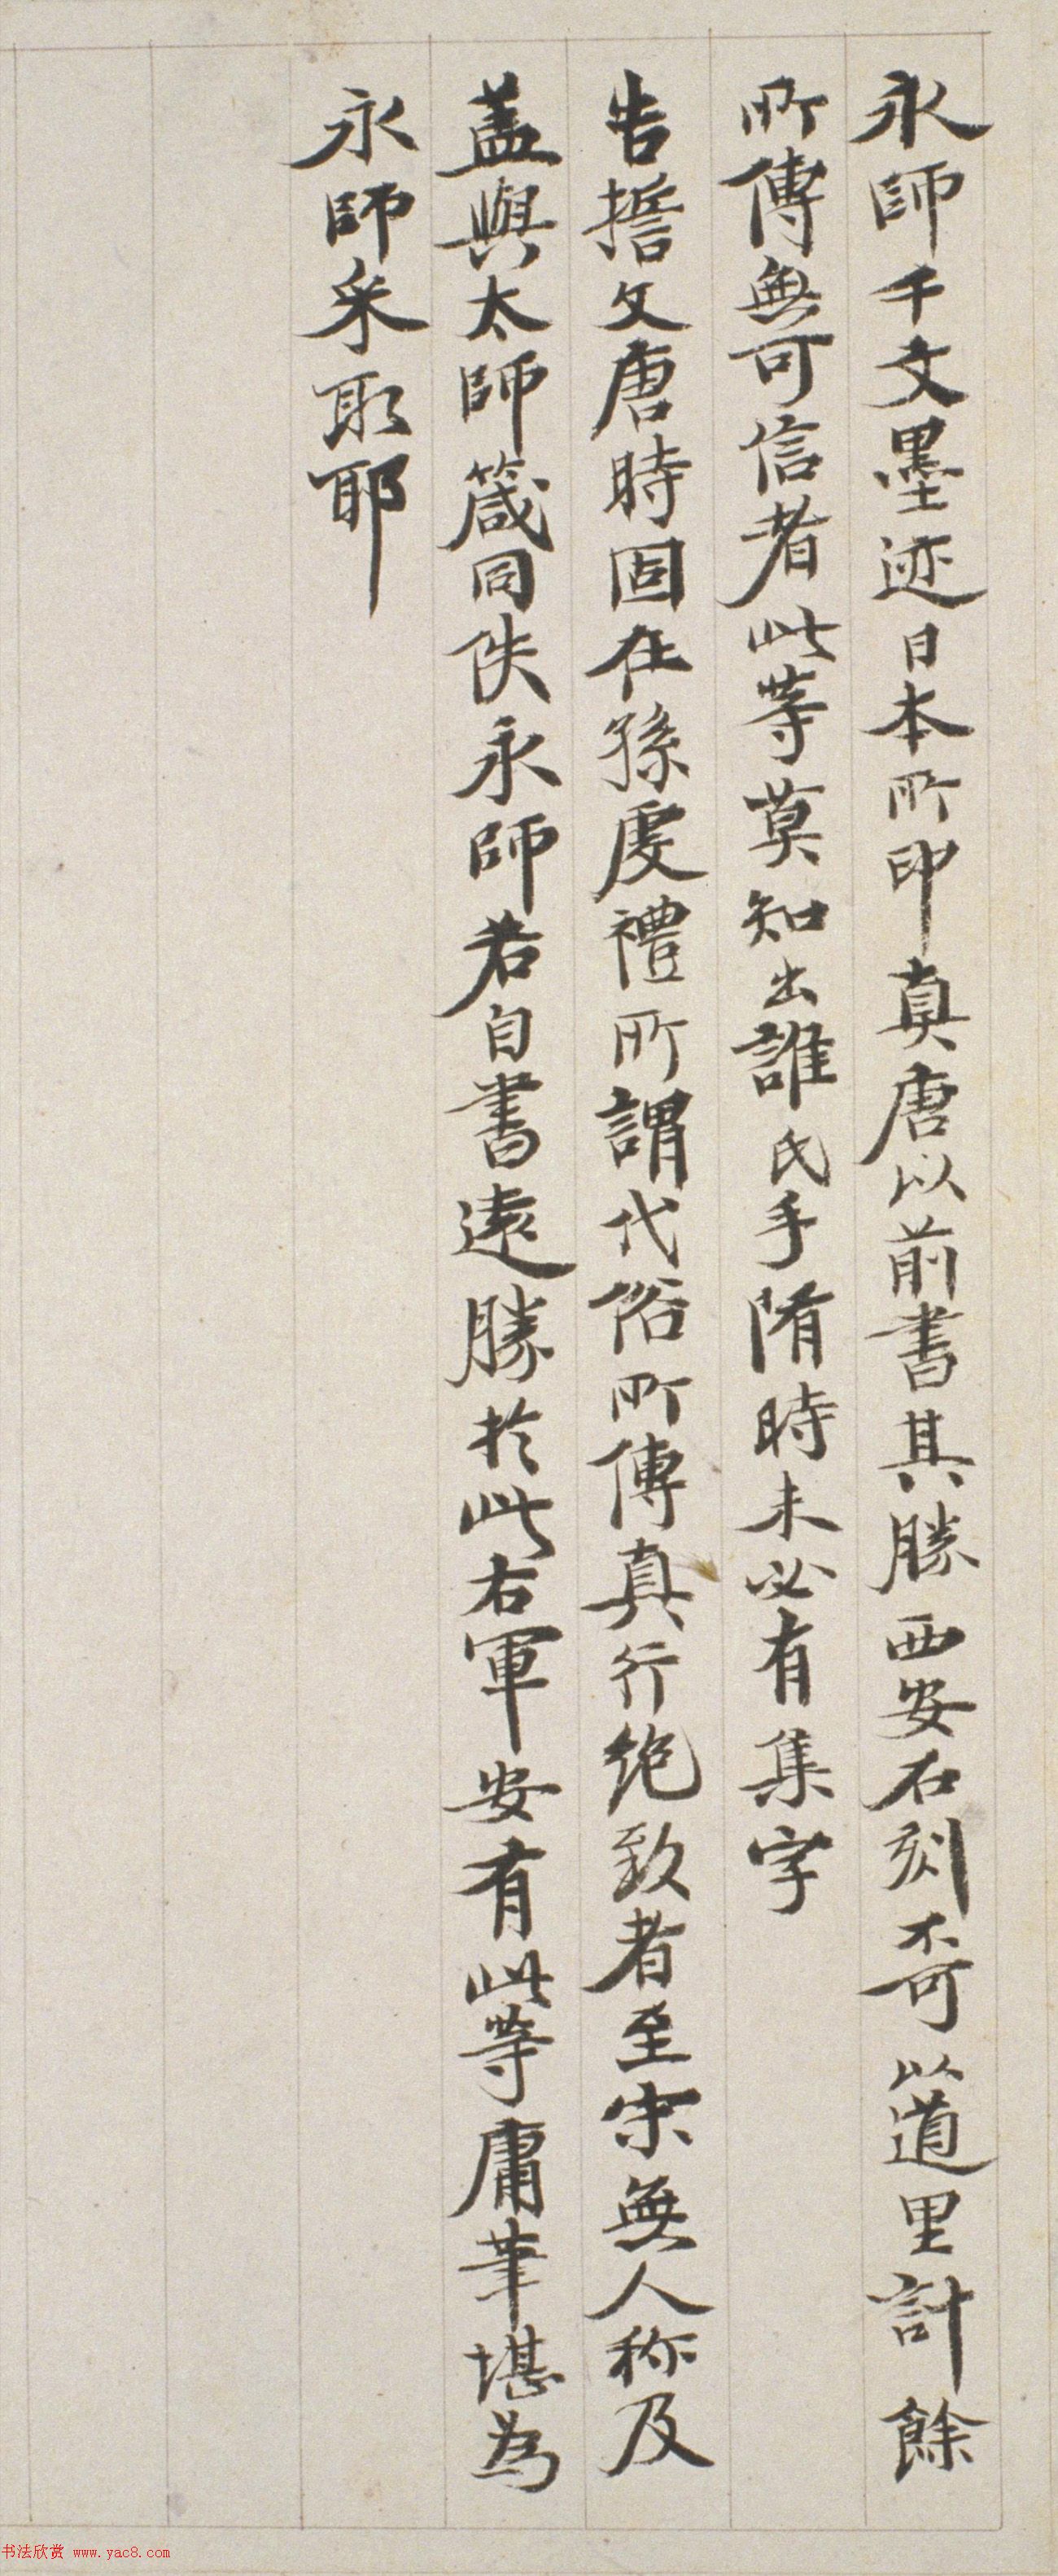 永師千文墨迹日本所印真唐以前書其勝西安石刻不可以道里計餘
所傳無可信者此等莫知出誰氏手隋時未必有集字
告誓文唐時固在孫虔禮所謂代俗所傳真行絶致者至宋無人称及
盖與太師箴同佚永師若自書遠勝於此右軍安有此等庸筆堪為
永師采取耶
书法欣赏 www.yac8.com